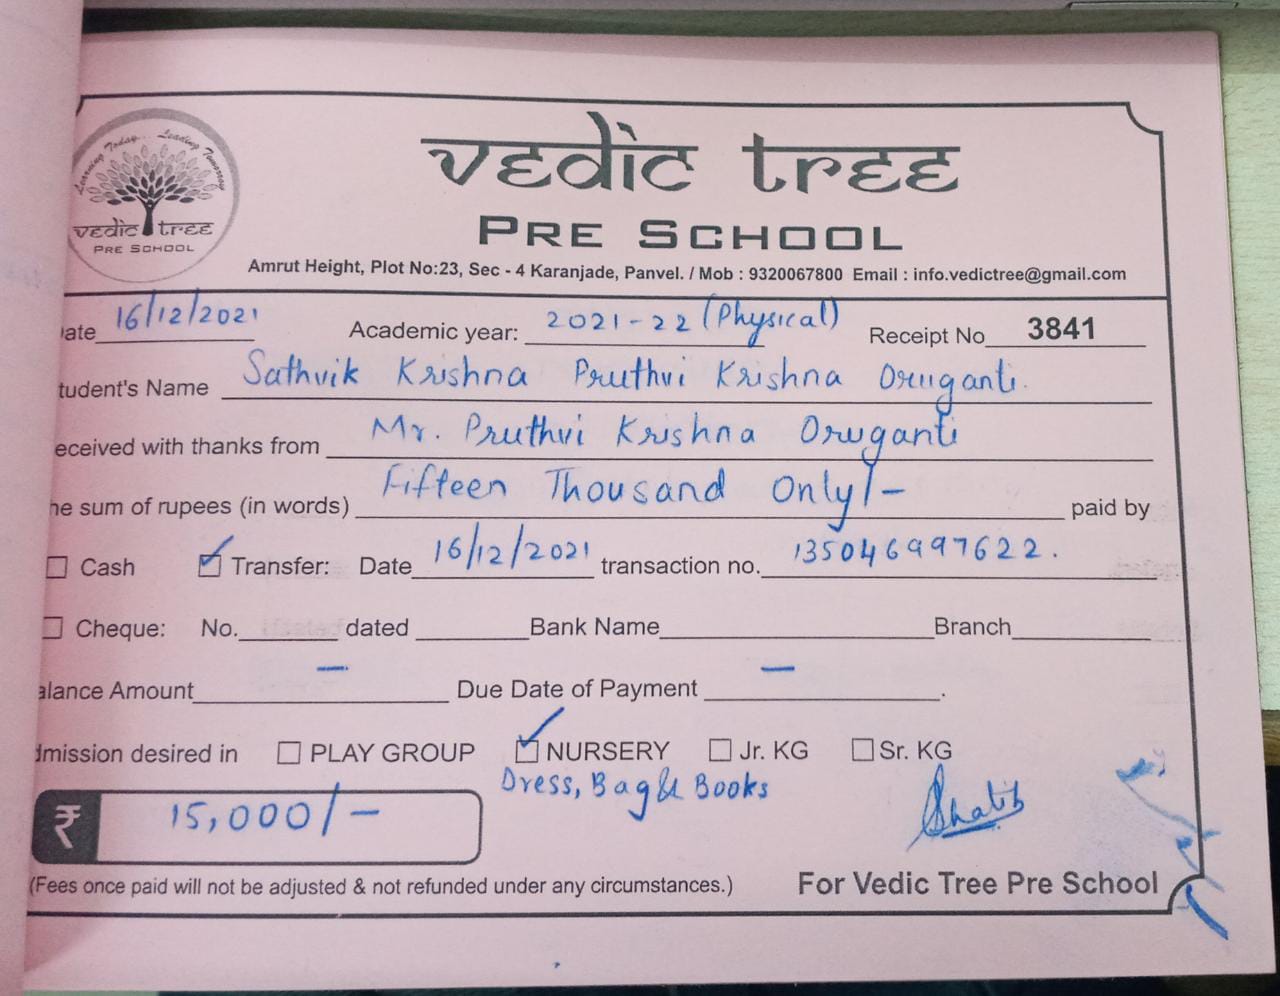 Learning Today... Leading Tomorrow
vedic tree
PRE SCHOOL
vedic tree
PRE SCHOOL
Amrut Height, Plot No:23, Sec - 4 Karanjade, Panvel. / Mob : 9320067800 Email : info.vedictree@gmail.com
ate 16/12/2021 Academic year: 2021-22 (Physical) Receipt No 3841
tudent's Name Sathvik Krishna Pruthvi Krishna Oruganti.
eceived with thanks from Mr. Pruthvi Krishna Oruganti
he sum of rupees (in words) Fifteen Thousand Only/- paid by
Cash Transfer: Date 16/12/2021 transaction no. 135046997622.
Cheque: No. dated Bank Name Branch
alance Amount — Due Date of Payment — .
dmission desired in PLAY GROUP NURSERY Jr. KG Sr. KG
Dress, Bag & Books
₹ 15,000/-
(Fees once paid will not be adjusted & not refunded under any circumstances.) For Vedic Tree Pre School